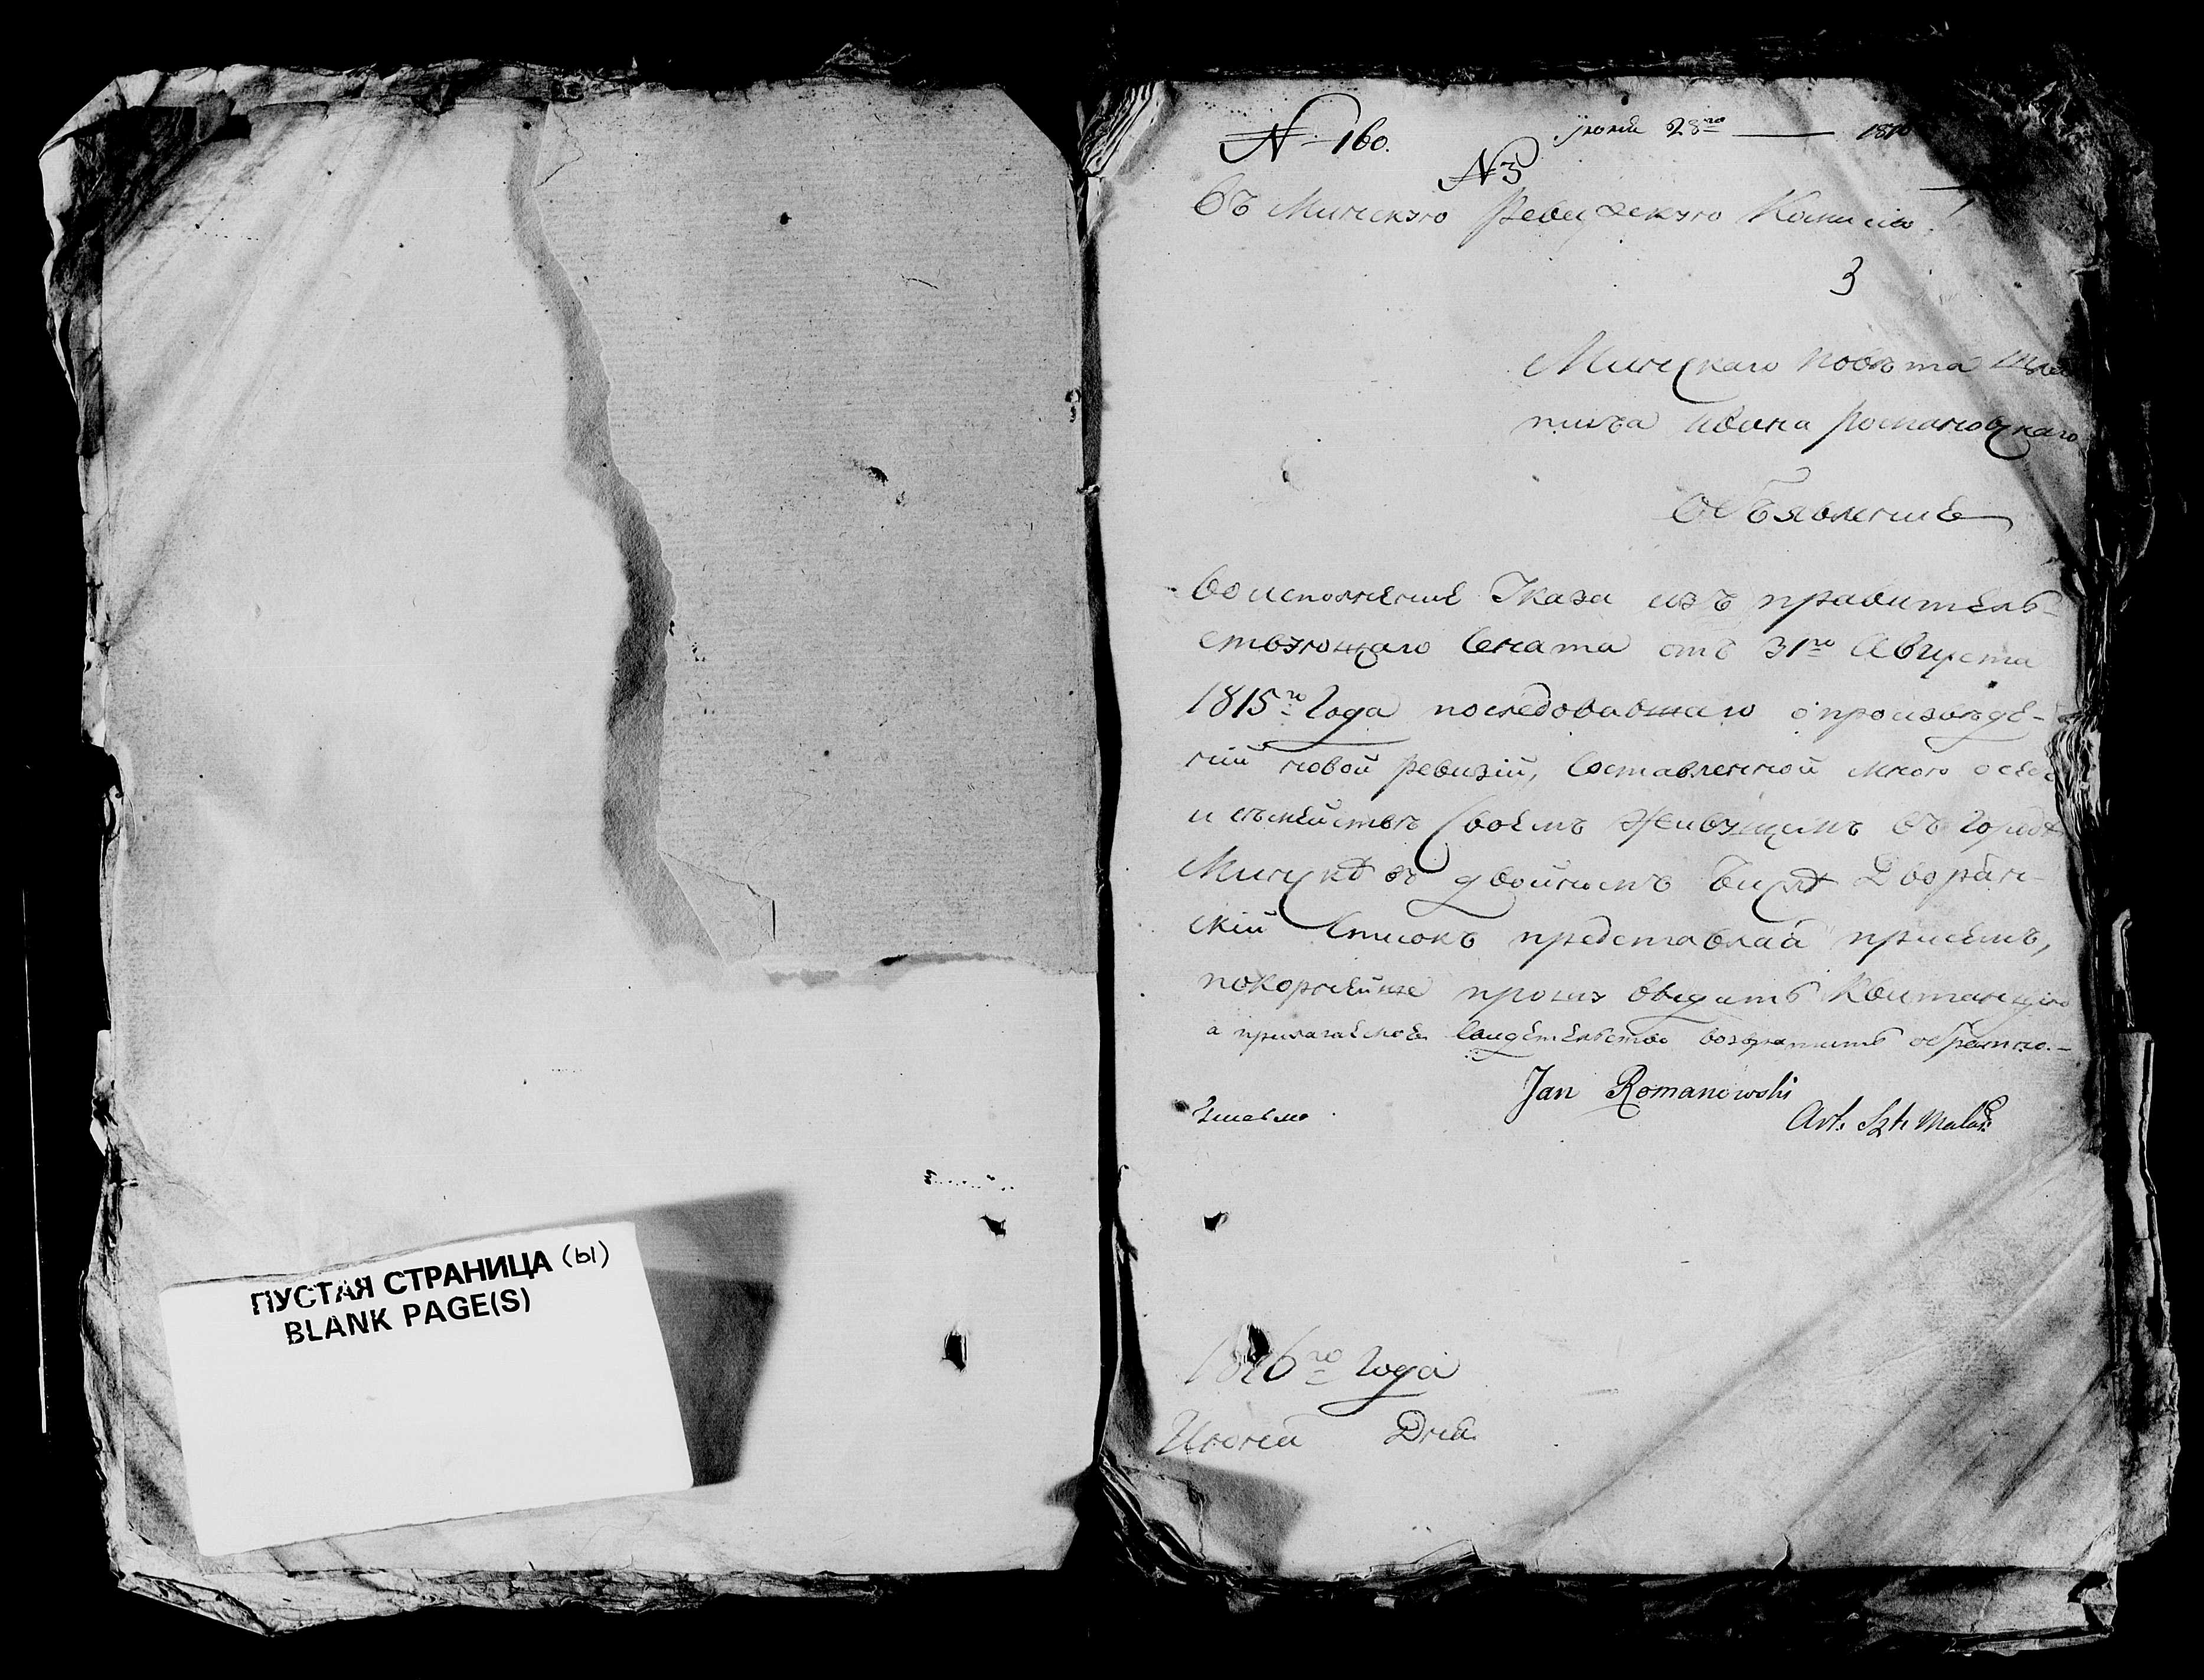 ПУСТАЯ СТРАНИЦА (ы)
BLANK PAGE(S)
N 160.
Июня 28го
N3
Въ Минскую Ревизскую Комисію
3
Минскаго повѣта
Ивана Романовскаго
Объявленіе
Во исполненіе Указа изъ правитель-
ствующаго Сената отъ 31го Августа
1815го Года последовавшаго о произведе-
ніи новой ревизіи, Составленной мною о себѣ
и съмействе своемъ живущемъ въ городѣ
Минскѣ въ двойномъ видѣ Дворян-
скій Списокъ представляя присемъ,
покорнейше прошу выдать Квитанцію
а прилагаемое свидетельство возвратить обратно.-
Jan Romanowski
1816го Года
Июня Дня